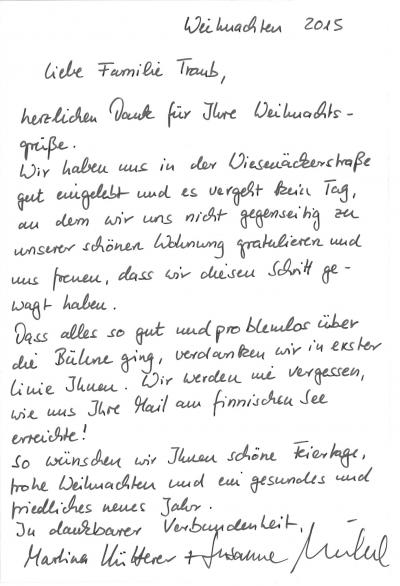 Weihnachten 2015
Liebe Familie Traub,
herzlichen Dank für Ihre Weihnachts-
grüße.
Wir haben uns in der Wiesenäckerstraße
gut eingelebt und es vergeht kein Tag,
an dem wir uns nicht gegenseitig zu
unserer schönen Wohnung gratulieren und
uns freuen, dass wir diesen Schritt ge-
wagt haben.
Dass alles so gut und problemlos über
die Bühne ging, verdanken wir in erster
Linie Ihnen. Wir werden nie vergessen,
wie uns Ihre Mail am finnischen See
erreichte!
So wünschen wir Ihnen schöne Feiertage,
frohe Weihnachten und ein gesundes und
friedliches neues Jahr.
In dankbarer Verbundenheit,
Martina + Susanne